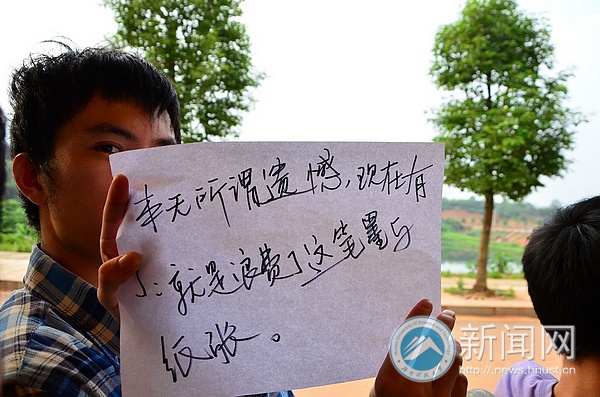 本无所谓遗憾，现在有
了：就是浪费了这笔墨与
纸张。
新闻网
www.news.hnust.cn